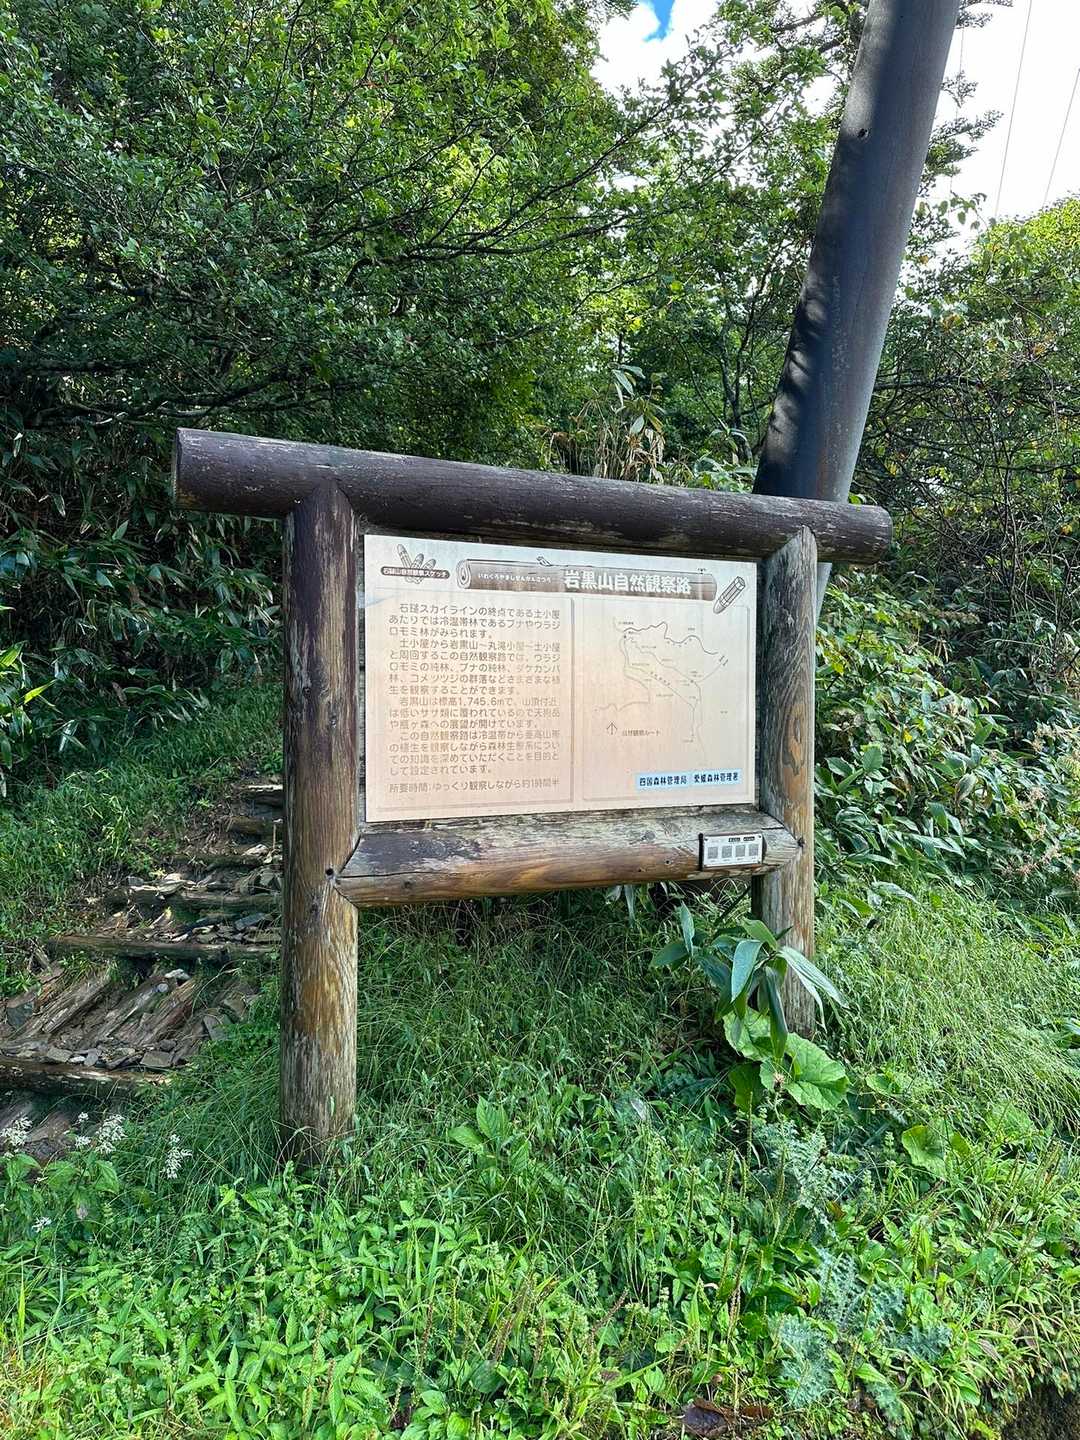 石鎚山自然観察スケッチ
いわくろやましぜんかんさつろ
岩黒山自然観察路
石鎚スカイラインの終点である土小屋
あたりでは冷温帯林であるブナやウラジ
ロモミ林がみられます。
土小屋から岩黒山～丸滝小屋～土小屋
と周回するこの自然観察路では、ウラジ
ロモミの純林、ブナの純林、ダケカンバ
林、コメツツジの群落などさまざまな植
生を観察することができます。
岩黒山は標高1,745.6mで、山頂付近
は低いササ類に覆われているので天狗岳
や瓶ヶ森への展望が開けています。
この自然観察路は冷温帯から亜高山帯
の植生を観察しながら森林生態系につい
ての知識を深めていただくことを目的と
して設定されています。
所要時間：ゆっくり観察しながら約1時間半
自然観察ルート
四国森林管理局 愛媛森林管理署